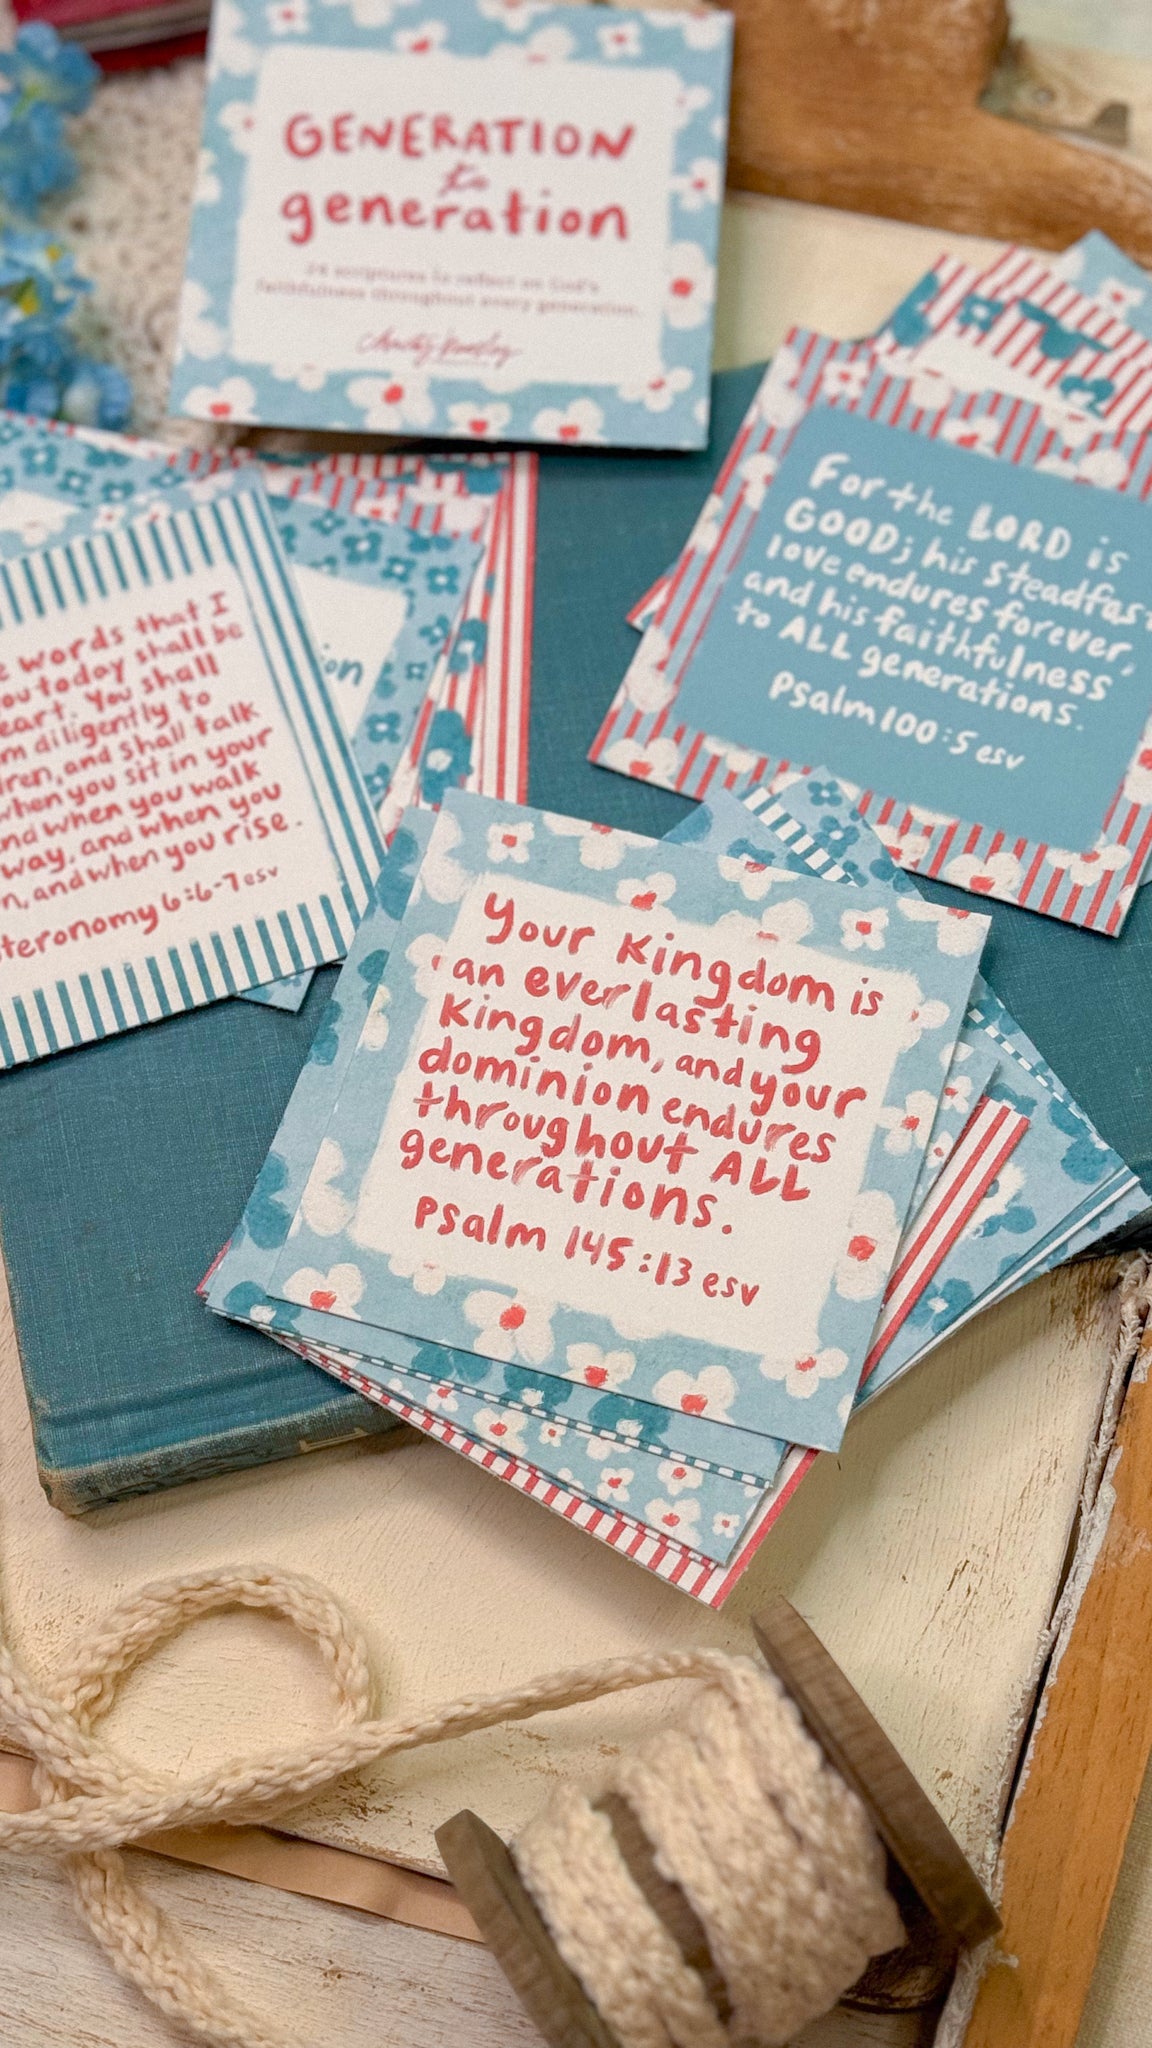 GENERATION
to
generation
24 scriptures to reflect on God's
faithfulness throughout every generation.
For the LORD is
GOOD; his steadfast
love endures forever,
and his faithfulness
to ALL generations.
Psalm 100:5 esv
words that I
you today shall be
You shall
diligently to
and shall talk
when you sit in your
and when you walk
way, and when you
and when you rise.
6:6-7 esv
Your Kingdom is
an everlasting
Kingdom, and your
dominion endures
throughout ALL
generations.
Psalm 145:13 esv